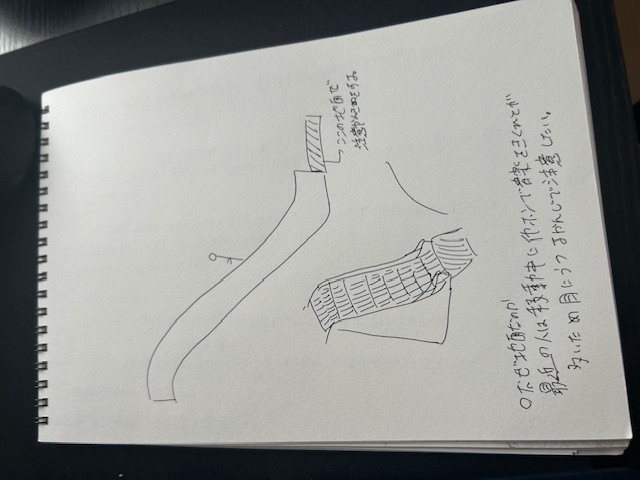 ここの地面で
注意かんきをする。
○なぜ地面なのか
最近の人は移動中にイヤホンで音楽をきくひとが
多いため目にうつるかんじで注意したい。